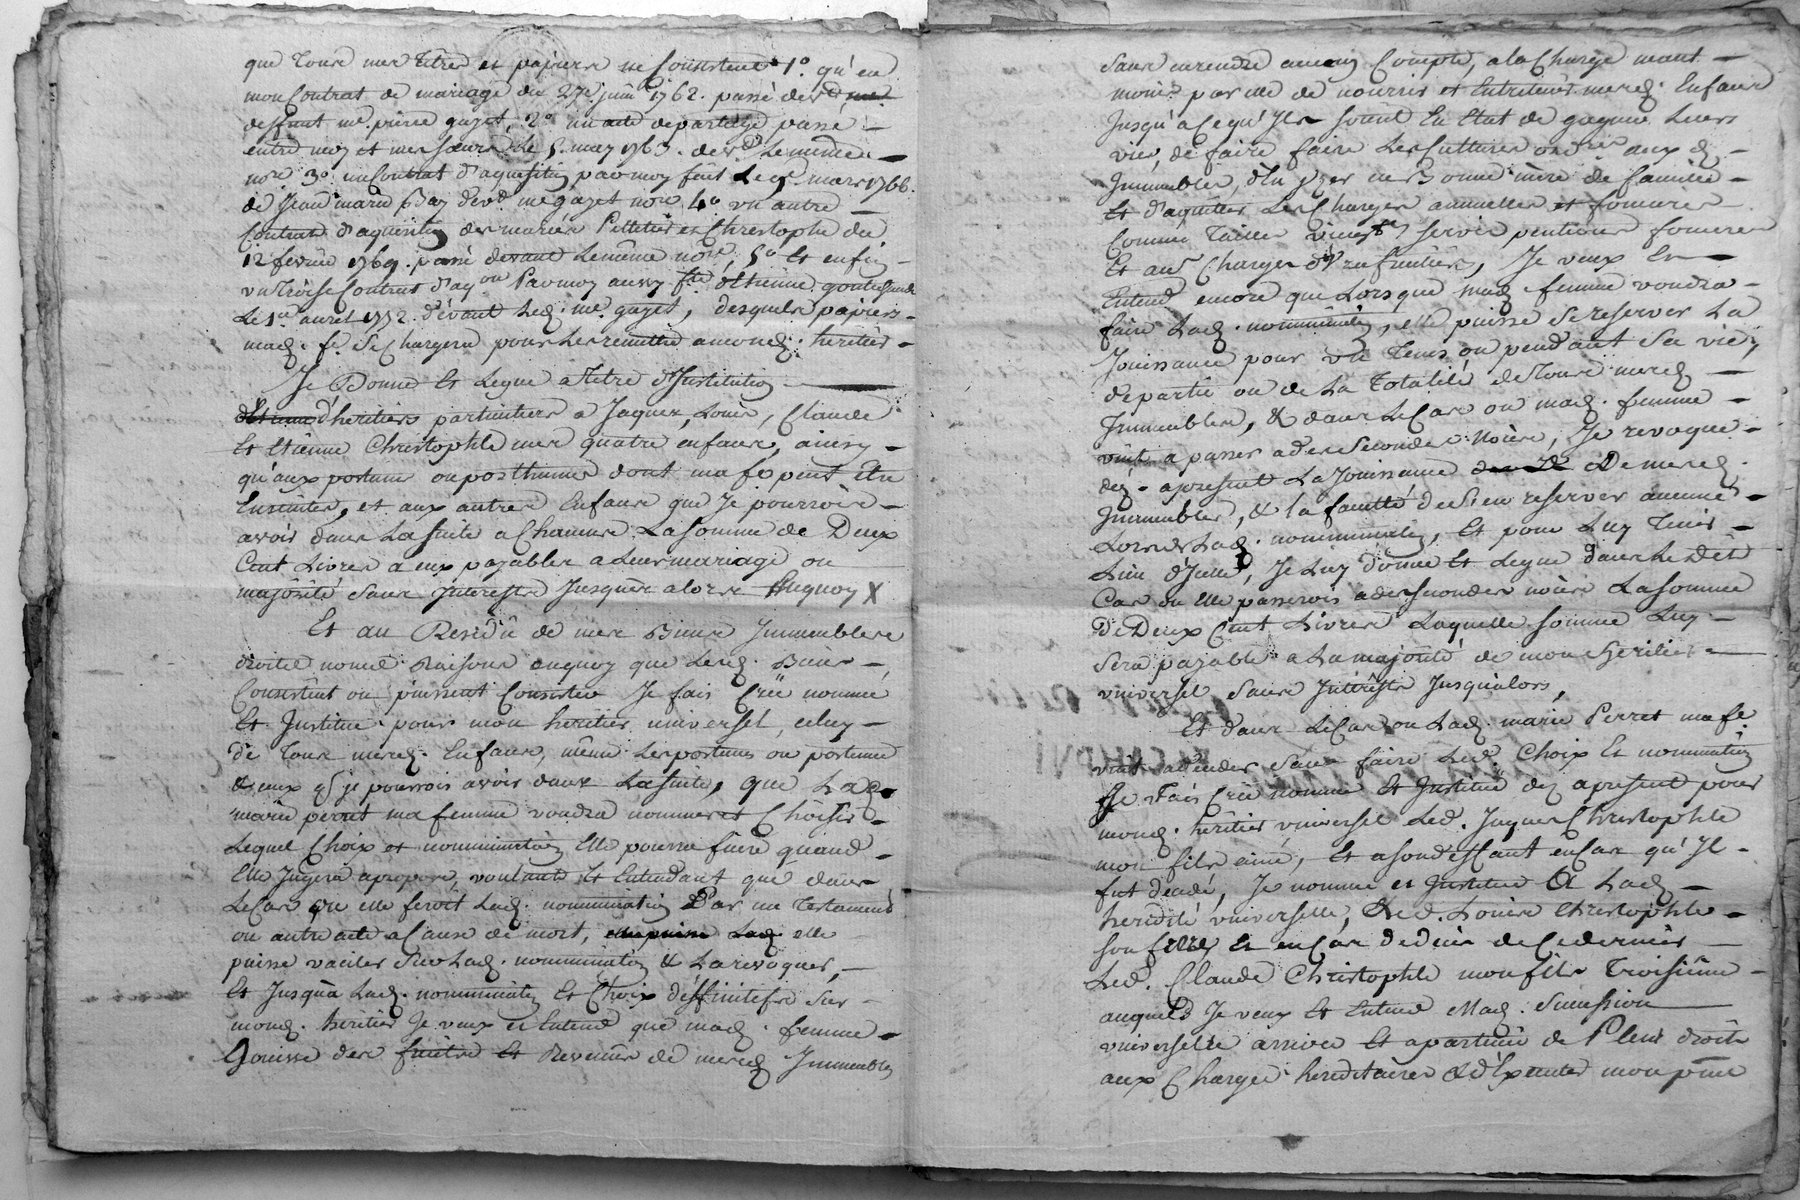 que tous mes titres et papiers ne Consistent 1° qu'en
mon Contrat de mariage du 27e juin 1762. passé devd
deffunt me pierre gayet, 2° un acte departage passé
entre moy et mes sœurs le 5. may 1763. devd Le même
nore 3° un Contrat d'aquisition par moy fait Le 9e mars 1766.
de jean marie Bay devd me gayet nore 4° un autre
Contrat d'aquisition des mariés Pelletier et Christophle du
12 février 1769. passé devant Le même nore, 5° Et enfin
un troise Contrat d'aqon Par moy aussy fait d'Etienne
Le 1er avril 1772. dévant Led. me gayet, desquels papiers
mad. fe Se Chargera pour Les remettre a mond. heritier
Je Donne Et Legue a titre d'Institution
d'heritiers particuliers a Jaques, Louis, Claude
Et Etienne Christophle mes quatre enfans, ainsy
qu'aux postume ou posthumes dont ma fe peut Etre
Enceinte, et aux autres Enfans que Je pourrois
avoir dans La suite a Chacun La somme de Deux
Cent Livres a eux payables a Leur mariage ou
majorité sans Interests Jusques alors Enquoy X
Et au Residû de mes Biens Immeubles
droits noms Raisons enquoy que Lesd. Biens
Consistent ou puissent Consister Je fais Crée nomme
Et Institue pour mon heritier universel, celuy
de tous mesd. Enfans, même Les postumes ou postume
& ceux q. je pourrois avoir dans La suite, que Lad.
marie perret ma femme voudra nommer et Choisir
Lequel Choix et nommination Elle pourra faire quand
Elle Jugera apropos, voulant Et Entendant que dans
Le Cas ou elle feroit Lad. nommination Par un testament
ou autre acte a Cause de mort, elle
puisse vaciler Sur Lad. nommination & La revoquer,
Et Jusqu'a Lad. nommination Et Choix déffinitifs sur
mond. heritier Je veux et Entend que mad. femme
Jouisse des fruits Et Revenus de mesd. Immeubles
Sans en rendre aucun Compte, a la Charge neant
moins par elle de nourrir et Entretenir mesd. Enfans
Jusqu'a Ce qu'Ils soient En Etat de gagner Leurs
vies, de faire faire Les Cultures ordres aux d.
Immeubles, d'En user en Bonne mere de famille
Et d'aquitter Les Charges annuelles et fonciers
Comme tailles vingtme servis pentions foncieres
Et autres Charges d'Usufruitier, Je veux Et
Entend encore que Lorsque mad. femme voudra
faire Lad. nommination, elle puisse Se reserver La
Jouissance pour un tems, ou pendant Sa vie,
de partie ou de La totalité de tous mesd.
Immeubles, & dans Le Cas ou mad. femme
vint a passer a des Secondes Noces, Je revoque
dez apresent La Jouissance De mesd.
Immeubles, & la faculté de S'en reserver aucune
Lors de Lad. nommination, Et pour Luy tenir
Lieu d'Icelle, Je Luy donne Et Legue dans Le dit
Cas ou Elle passerois a des secondes noces La somme
De Deux Cent Livres Laquelle somme Luy
Sera payable a La majorité de mon heritier
universel sans Intérêts Jusqu'alors,
Et dans Le Cas ou Lad. marie Perret ma fe
vint a deceder Sans faire Led. Choix Et nommination
Je Fais Crée nomme Et Institue dez apresent pour
mond. héritier universel Led. Jaques Christophle
mon fils ainé, Et a son deffaut en Cas qu'Il
fut décedé, Je nomme et Institue A Lad.
heredité universelle, Led. Louis Christophle
son frere Et en Cas de deces de Ce dernier
Led. Claude Christophle mon fils troisième
auquel Je veux Et Entend Mad. Succession
universelle arriver Et apartenir de Plein droits
aux Charges hereditaires & d'Executer mon pnt